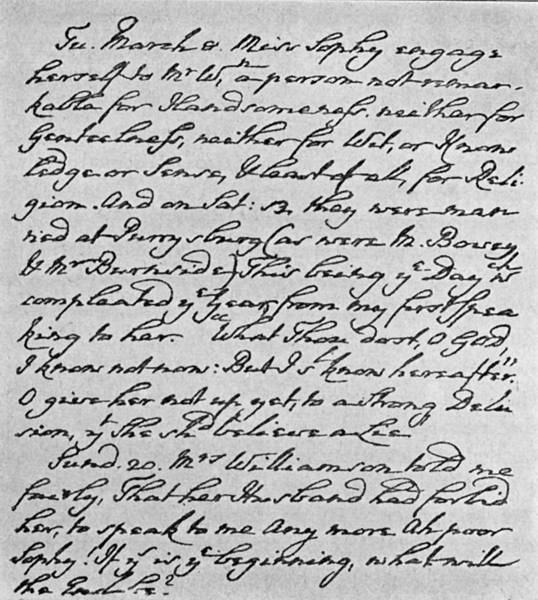 Tu. March 8. Miss Sophy engag'd
herself to Mr Wn, a person not remar-
kable for Handsomeness, neither for
Genteelness, neither for Wit, or Know-
ledge or Sense, & least of all, for Reli-
gion. And on Sat: 12, they were mar-
ried at Purrysburg (as were M. Bovey
& Mr Burnside) This being ye Day wch
compleated ye Year, from my first spea
king to her. "What Thou doest, O God,
I know not now: But I sl know hereafter".
O give her not up yet, to a strong Delu
sion, yt She shd believe a Lie"
Sund. 20. Mrs Williamson told me
fairly, That her Husband had forbid
her, to speak to me any more Ah poor
Sophy! If ys is ye beginning, what will
the End be?